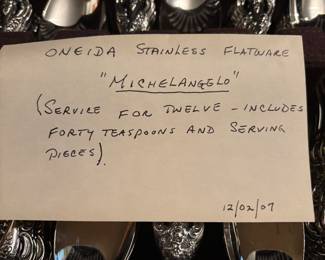 ONEIDA STAINLESS FLATWARE
"MICHELANGELO"
(SERVICE FOR TWELVE - INCLUDES
FORTY TEASPOONS AND SERVING
PIECES).
12/02/07